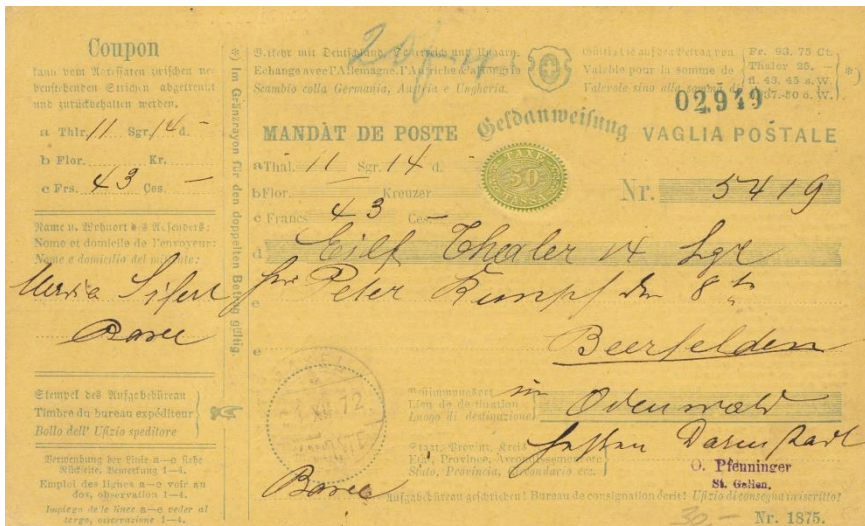 Coupon
kann vom Adressaten zwischen ne-
benstehenden Strichen abgetrennt
und zurückbehalten werden.
a Thlr. 11 Sgr. 14 d. –
b Flor. Kr.
c Frs. 43 Ces. –
Name u. Wohnort des Absenders:
Nome et domicile de l'envoyeur:
Nome e domicilio del mittente:
Maria Sifert
Basel
Stempel des Aufgabebüreau
Timbre du bureau expéditeur
Bollo dell' Ufizio speditore
Verwendung der Linie a—e siehe
Rückseite, Bemerkung 1—4.
Emploi des lignes a—e voir au
dos, observation 1—4.
Impiego delle linee a—e veder al
tergo, osservazione 1—4.
*) Im Gränzrayon für den doppelten Betrag gültig.
Verkehr mit Deutschland, Österreich und Ungarn.
Echange avec l'Allemagne, l'Autriche & la Hongrie
Scambio colla Germania, Austria e Ungheria.
Valable pour la somme de
Valevole sino alla somma di
Fr. 93. 75 Ct.
Thaler 25. –
fl. 43. 45 s. W.
*)
02949
MANDAT DE POSTE Geldanweisung VAGLIA POSTALE
TAXE 50 TASSA
a Thal. 11 Sgr. 14 d.
b Flor. Kreuzer
c Francs 43 Ces. –
Nr. 5419
d Eilf Thaler 14 Sgr
e Peter Kumpf den 8
e Beerfelden
Bestimmungsort
Lieu de destination
Luogo di destinazione
im Odenwald
Staat, Provinz, Kreis
Etat, Province, Arrondissement etc.
Stato, Provincia, Circondario ecc.
Hessen Darmstadt
XII 72
Basel
O. Pfenninger
St. Gallen.
Aufgabebüreau geschrieben! Bureau de consignation écrit! Ufizio di consegna inscritto!
30 – Nr. 1875.